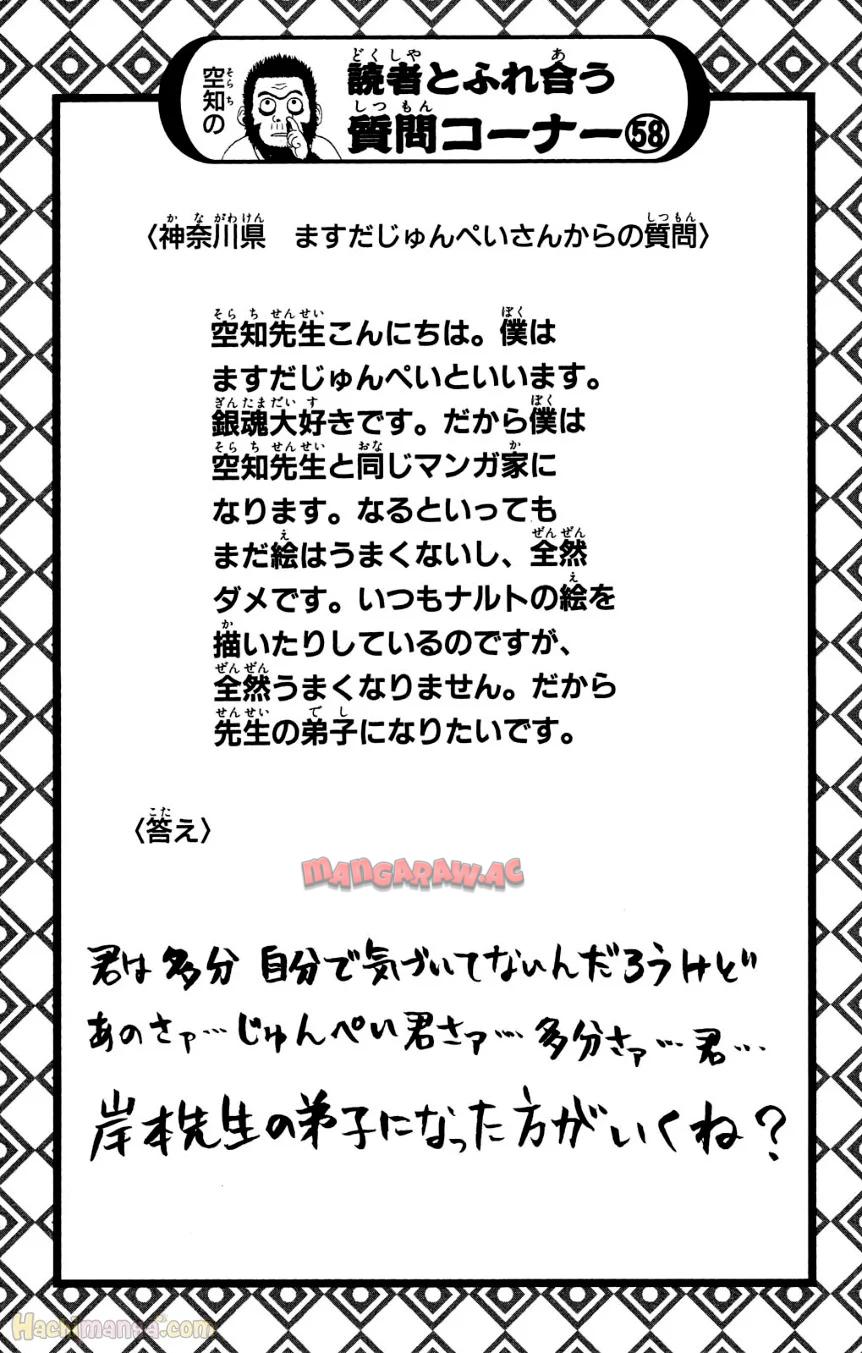 空知の
読者とふれ合う
質問コーナー58
〈神奈川県　ますだじゅんぺいさんからの質問〉
空知先生こんにちは。僕は
ますだじゅんぺいといいます。
銀魂大好きです。だから僕は
空知先生と同じマンガ家に
なります。なるといっても
まだ絵はうまくないし、全然
ダメです。いつもナルトの絵を
描いたりしているのですが、
全然うまくなりません。だから
先生の弟子になりたいです。
〈答え〉
MANGARAW.AC
君は多分 自分で気づいてないんだろうけど
あのさァ…じゅんぺい君さァ…多分さァ…君…
岸本先生の弟子になった方がいくね？
Hachimanga.com